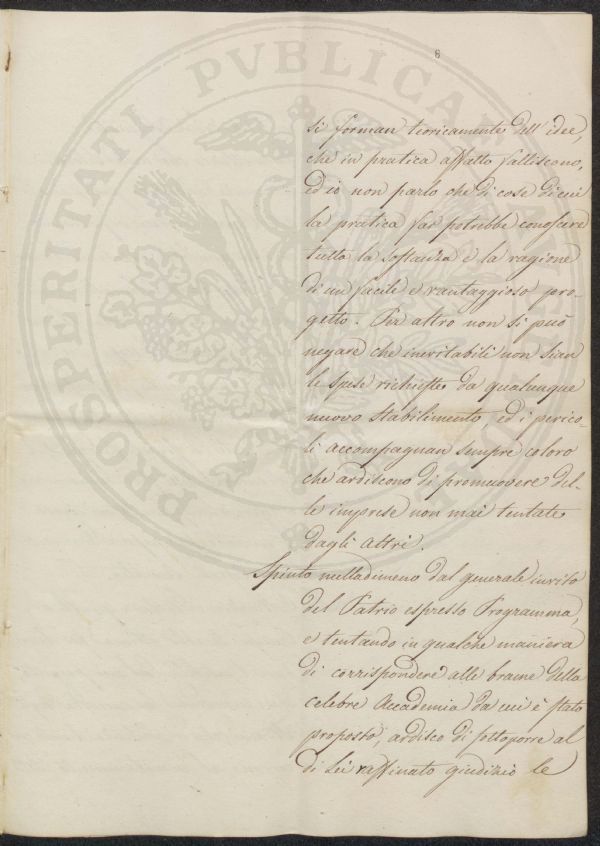 8
PROSPERITATI PVBLICAE
si forman teoricamente dell' idee,
che in pratica affatto falliscono,
ed io non parlo che di cose di cui
la pratica far potrebbe conoscere
tutta la sostanza e la ragione
di un facile e vantaggioso pro-
getto. Per altro non si può
negare che inevitabili non sian
le spese richieste da qualunque
nuovo stabilimento, ed i perico-
li accompagnan sempre coloro
che ardiscono di promuovere del-
le imprese non mai tentate
dagli altri.
Spinto nulladimeno dal generale invito
del Patrio espresso Programma,
e tentando in qualche maniera
di corrispondere alle brame della
celebre Accademia da cui è stato
proposto, ardisco di sottoporre al
di Lei raffinato giudizio le